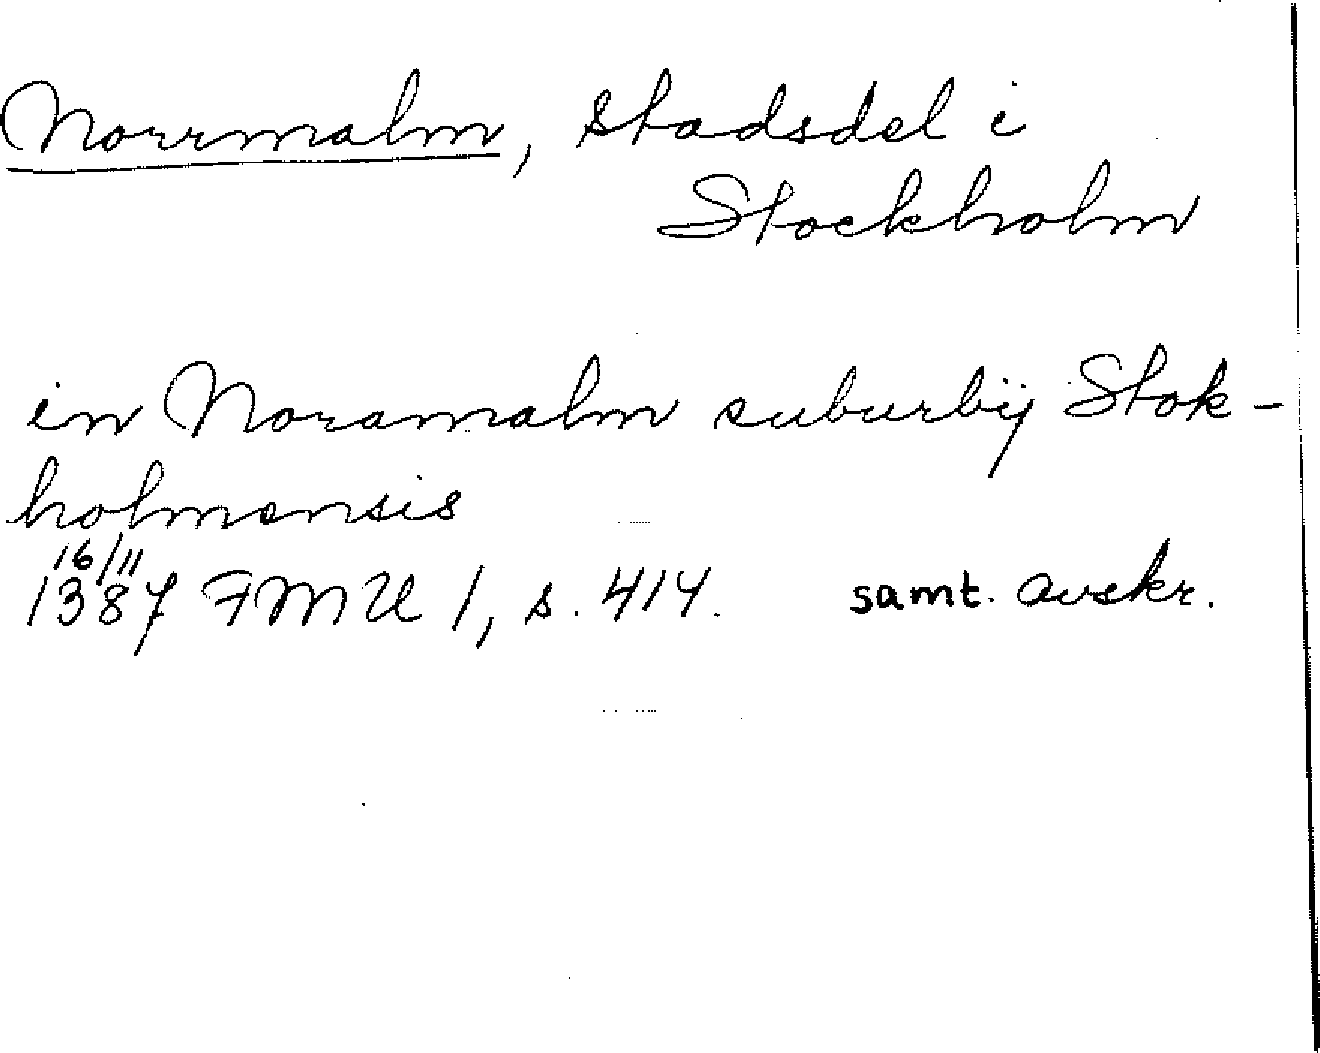 Norrmalm, stadsdel i
Stockholm
in Noramalm suburbij Stok-
holmensis
16/11
1387 FMU 1, s. 414. samt. avskr.